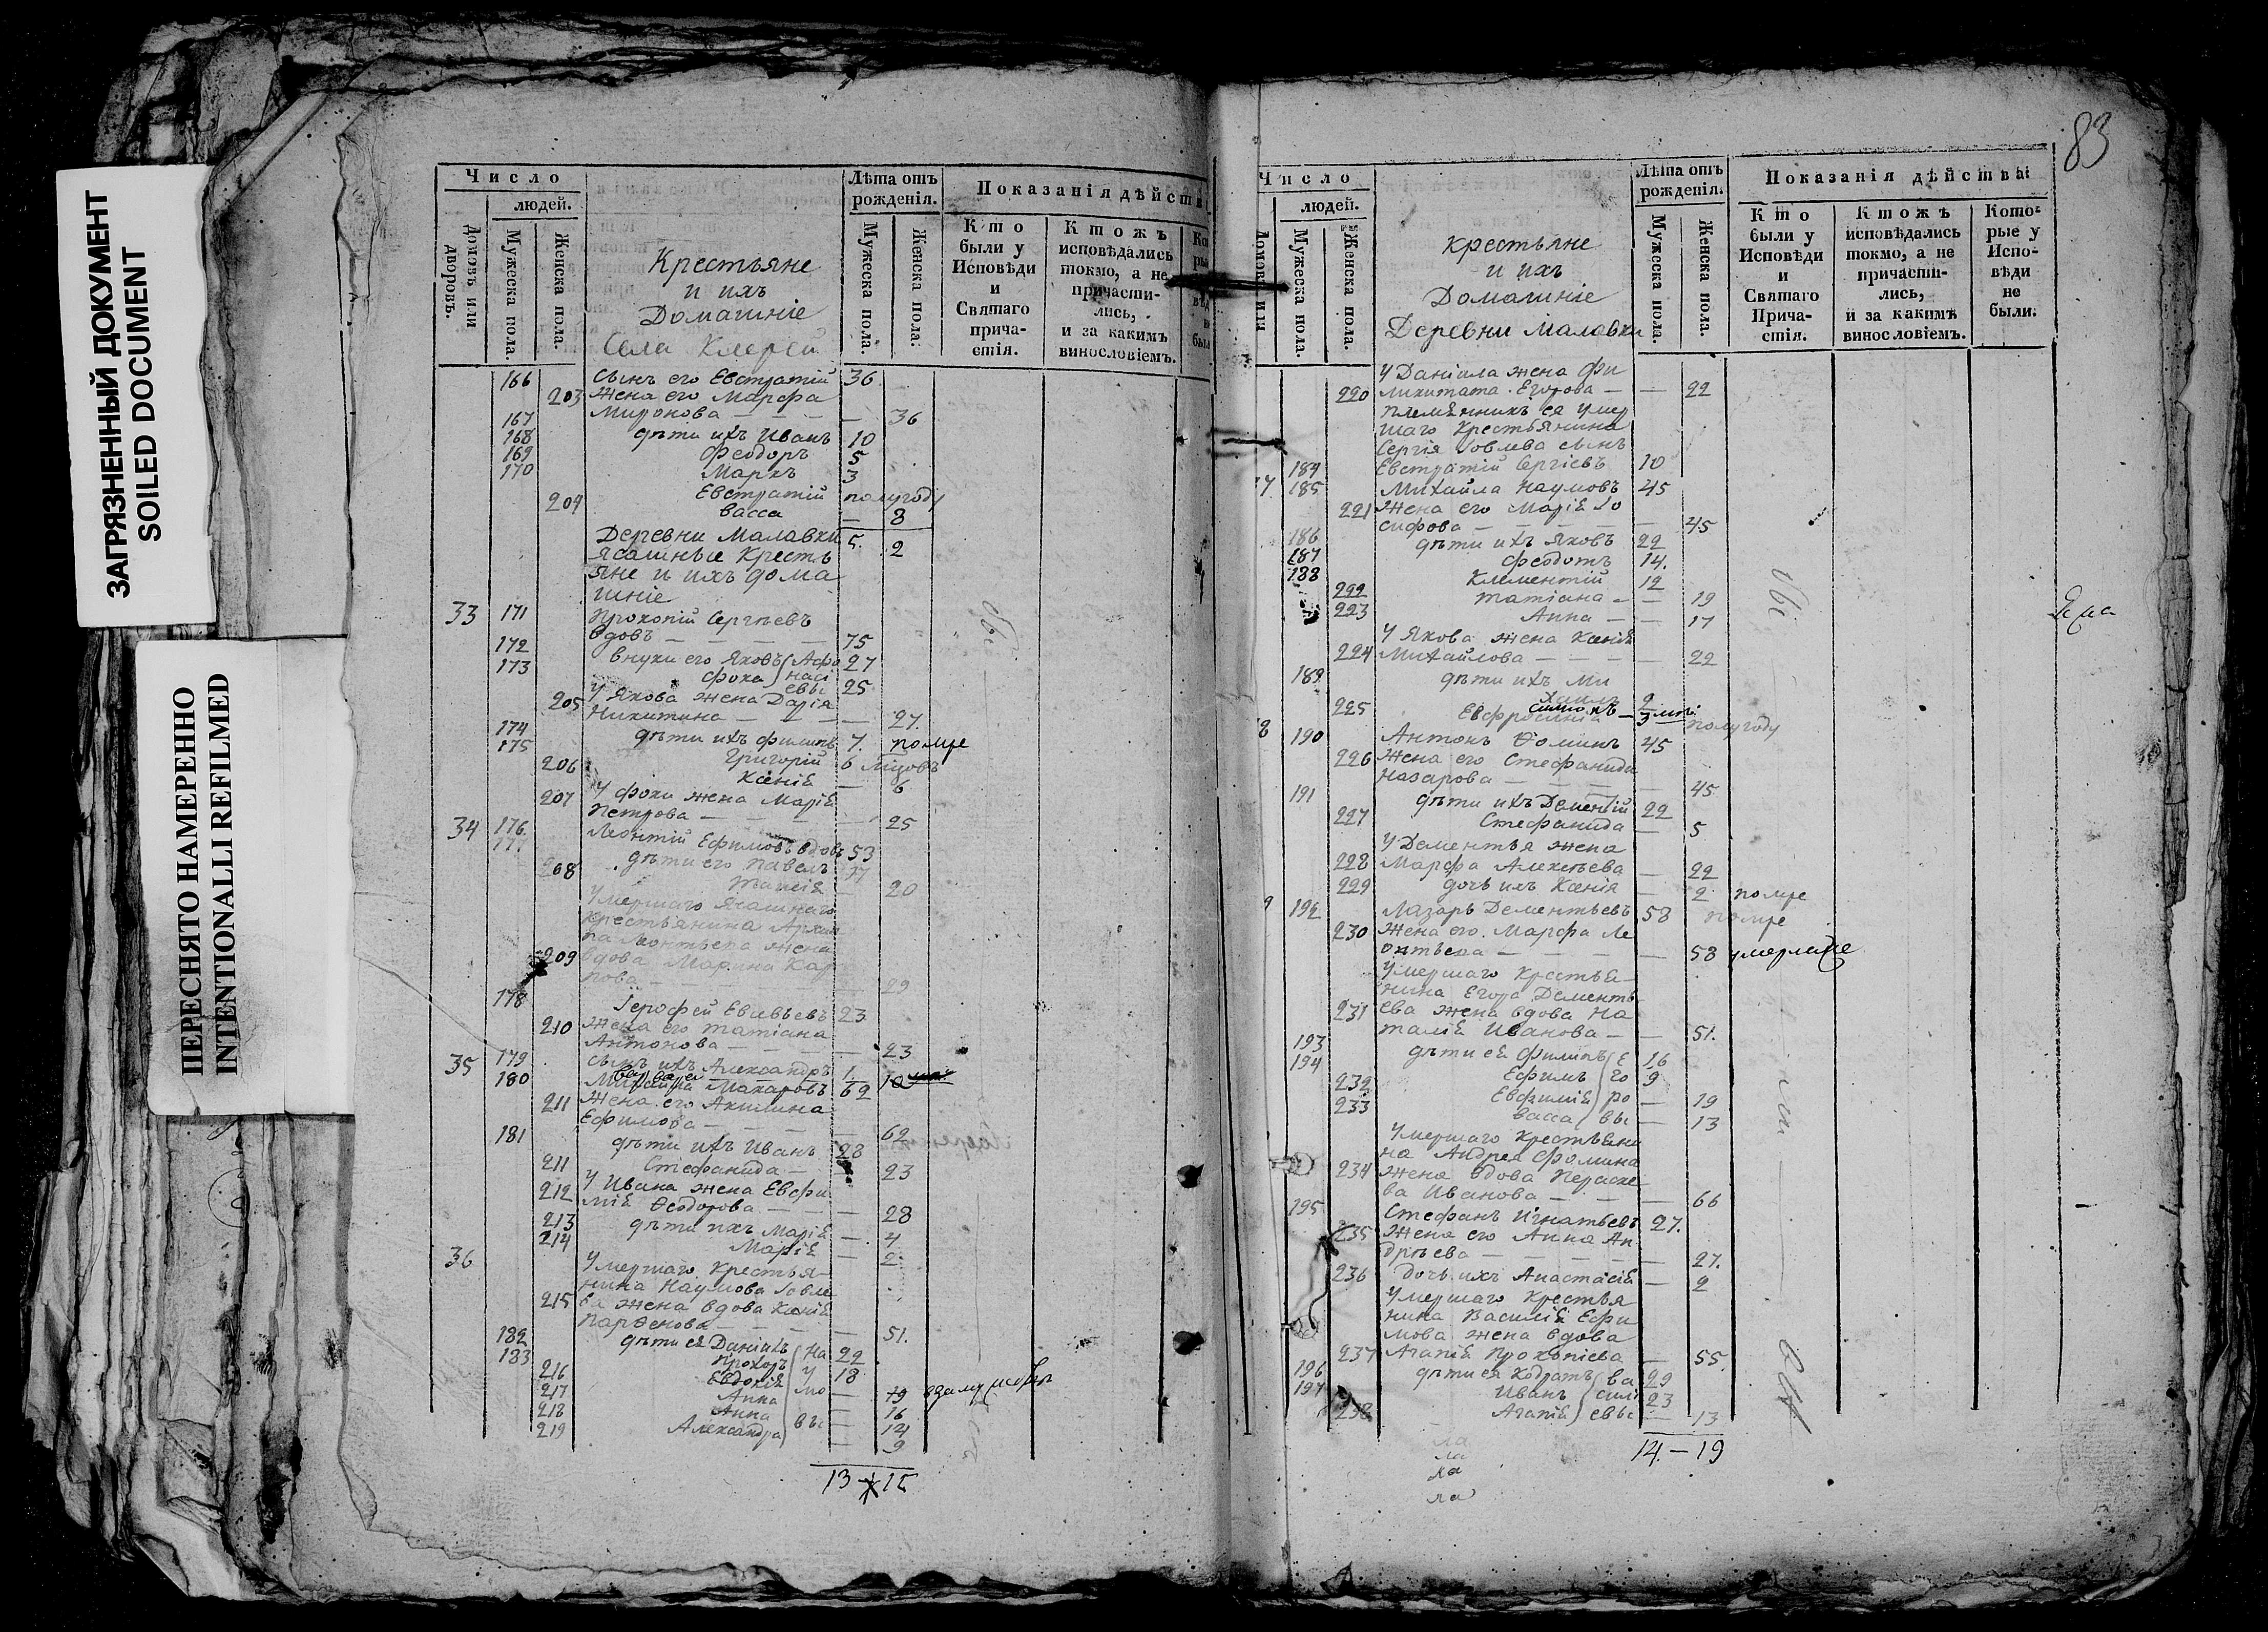 ЗАГРЯЗНЕННЫЙ ДОКУМЕНТ
SOILED DOCUMENT
ПЕРЕСНЯТО НАМЕРЕННО
INTENTIONALLI REFILMED
Число
людей.
Домовъ или дворовъ.
Мужеска пола.
Женска пола.
Крестьяне
и ихъ
Домашніе
Села
Лѣта отъ рожденія.
Мужеска пола.
Женска пола.
Показанія дѣйств
Кто были у Исповѣди и Святаго прича-стія.
Ктожъ исповѣдались токмо, а не причасти-лись, и за какимъ винословіемъ.
166 сынъ его Евстратій 36
203 жена его Марфа
Миронова — 36
167 дѣти ихъ Иванъ 10
168 Феодоръ 5
169 Маркъ 3
170 Евстратій полугоду
204 Васса — 8
5. 2
Деревни Малавки
ясашные кресть
яне и ихъ дома
шніе
33 171 Прокопій Сергѣевъ
вдовъ — 75
172 внуки его Яковъ Афа 27
173 Фока наси евы 25
205 у Якова жена Дарія
Никитина — 27.
174 дѣти ихъ Филипъ 7. помре
175 Григорій 6 мцовъ
206 Ксенія — 6
207 У Фоки жена Марія
Петрова — 25
34 176 Леонтій Ефимовъ вдовъ 53
177 дѣти его Павелъ 17
208 20
Умершаго ясашнаго
крестьянина Архи
па Леонтьева жена
209 вдова Марина Кар
пова — 29
178 Іерофей Евсевьевъ 23
210 жена его Татіана
Антонова — 23
179 сынъ ихъ Александръ 1.
35 180 Макаровъ 62
211 жена его Акилина
Ефимова — 62
181 дѣти ихъ Иванъ 28
211 Стефанида — 23
212 У Ивана жена Евфи
мія Ѳеодорова — 28
213 дѣти ихъ Марія — 4
214 Марія — 2
36 Умершаго крестья
нина Наумова Іовле
215 ва жена вдова Ксенія
Парѳенова — 51.
182 дѣти ея Даніилъ На 22
183 Прохоръ у 18
216 Евдокія мо — 19 взамужство
217 Анна — 16
218 Анна вы — 14
219 Александра — 9
13 15
83
Число
людей.
Мужеска пола.
Женска пола.
крестьяне
и ихъ
Домашніе
Деревни Малавки
Лѣта отъ рожденія.
Мужеска пола.
Женска пола.
Показанія дѣйствы
Кто были у Исповѣди и Святаго Прича-стія.
Ктожъ исповѣдались токмо, а не причасти-лись, и за какимъ винословіемъ.
Кото-рые у Испо-вѣди не были.
У Даніила жена Фи
220 ликитата Егорова — 22
племянникъ ея умер
шаго крестьянина
Сергія Іовлева сынъ
184 Евстратій Сергіевъ 10
185 Михайла Наумовъ 45
221 жена его Марія Іо
сифова — 45
186 дѣти ихъ Яковъ 22
187 Феодотъ 14.
188 Климентій 12
222 Татіана — 19
223 Анна — 17
У Якова жена Ксенія
224 Михайлова — 22
189 дѣти ихъ Ми
хаилъ 2
225 Евфросинія полугоду
190 Антонъ Ѳоминъ 45
226 жена его Стефанида
Назарова — 45
191 дѣти ихъ Дементій 22
227 Стефанида — 5
У Дементья жена
228 Марфа Алексѣева — 22
229 дочь ихъ Ксенія — 2 помре
192 Лазарь Дементьевъ 58 помре
230 жена его Марфа Ле
онтьева — 58
Умершаго крестья
нина Егора Дементь
231 ева жена вдова На
талія Иванова — 51.
193 дѣти ея Филипъ Е 16
194 Ефимъ го 9
232 Евфимія ро — 19
233 Васса вы — 13
Умершаго крестьяни
на Андрея Фомина
234 жена вдова Параске
ва Иванова — 66
195 Стефанъ Игнатьевъ 27.
235 жена его Анна Ан
дрѣева — 27.
236 дочь ихъ Анастасія — 2
Умершаго крестья
нина Василія Ефи
мова жена вдова
237 Агапія Прокопіева — 55.
196 дѣти ея Кодратъ ва 29
197 Иванъ сили 23
238 Агапія евы — 13
14. — 19